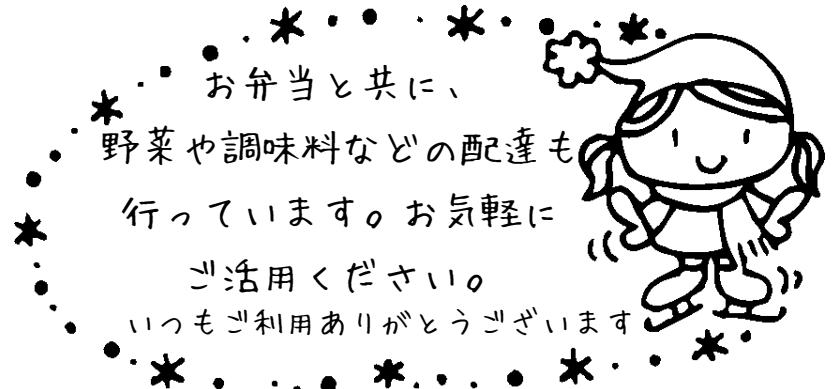 お弁当と共に、
野菜や調味料などの配達も
行っています。お気軽に
ご活用ください。
いつもご利用ありがとうございます